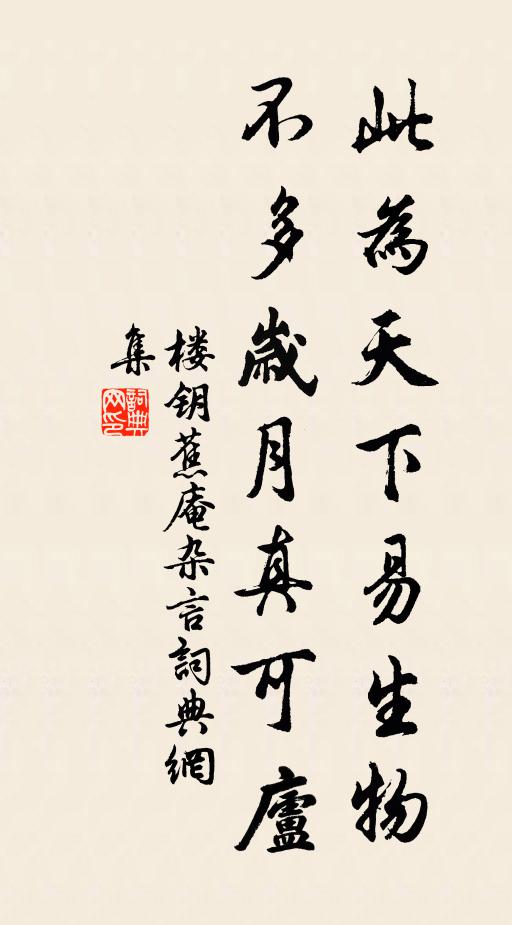 此為天下易生物
不多歲月真可廬
楼钥蕉庵杂言詞典網
集
詞典
网印